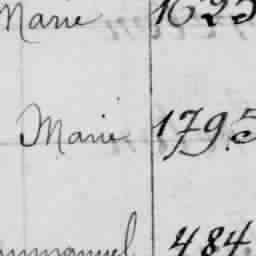 Marie 1625
Marie 1795
mmanuel 484